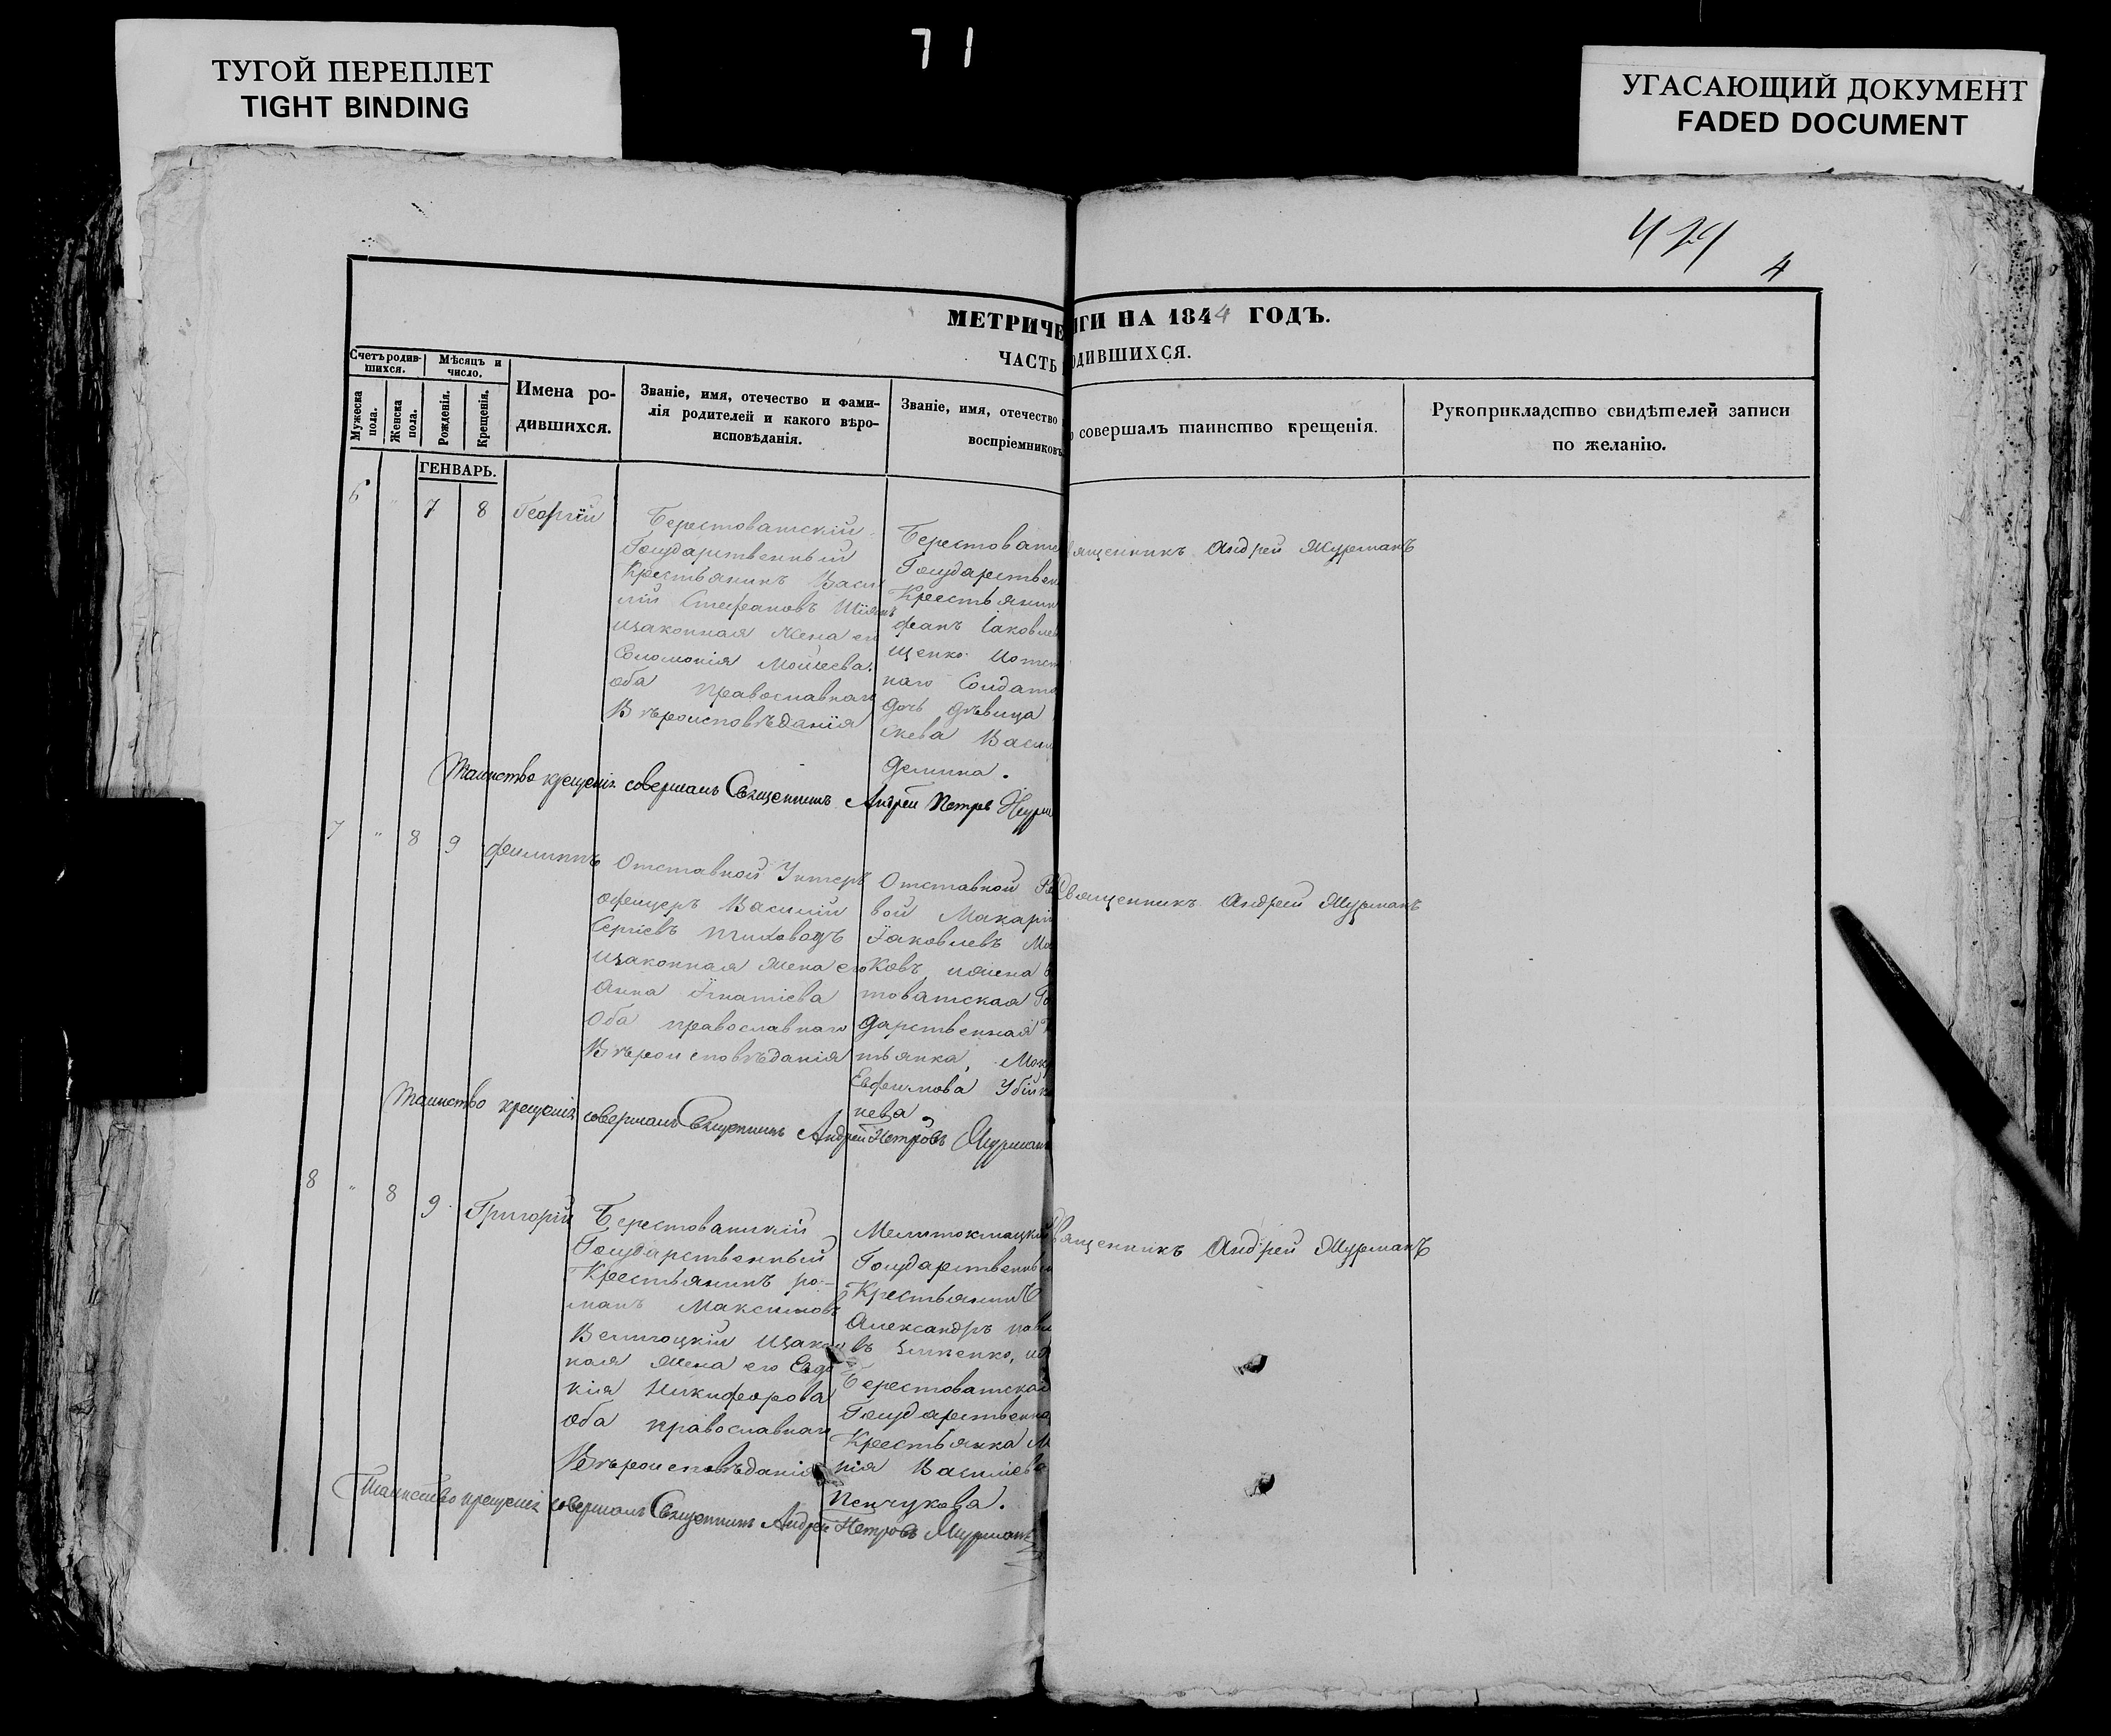 71
ТУГОЙ ПЕРЕПЛЕТ
TIGHT BINDING
УГАСАЮЩИЙ ДОКУМЕНТ
FADED DOCUMENT
4
МЕТРИЧЕ
ИГИ НА 1844 ГОДЪ.
ЧАСТЬ
ОДИВШИХСЯ.
Счетъ родив-
шихся.
Мѣсяцъ и
число.
Мужеска
пола.
Женска
пола.
Рожденія.
Крещенія.
Имена ро-
дившихся.
Званіе, имя, отечество и фами-
лія родителей и какого вѣро-
исповѣданія.
Званіе, имя, отечество
воспріемниковъ
совершалъ таинство крещенія.
Рукоприкладство свидѣтелей записи
по желанію.
ГЕНВАРЬ.
6 " 7 8 Георгій
Берестоватскій
Государственный
Крестьянинъ Васи
лій Стефановъ
изаконная жена его
Соломонія Моисеева.
оба православнаго
Вѣроисповѣданія
Берестоватс
Государствен
Крестьянин
фанъ Іаковлев
щенко иотст
наго Солдата
дочь дѣвица
Васил
Демина.
вященникъ Андрей Мурманъ
Таинство крещенія совершалъ Священникъ Андрей Петровъ Мурма
7 " 8 9 Филиппъ
Отставной Унтеръ
офицеръ Василій
Сергіевъ
изаконная жена его
Анна Игнатіева
Оба православнаго
Вѣроисповѣданія
Отставной Ря
вой Макарій
Іаковлевъ Ма
ковъ, ижена
товатская Го
дарственная
тьянка, Мок
Евфимова Убійко
нева
Священникъ Андрей Мурманъ
Таинство крещенія совершалъ Священникъ Андрей Петровъ Мурманъ
8 " 8 9 Григорій
Берестоватскій
Государственный
Крестьянинъ Ро-
манъ Максимовъ
Велигоцкій изакон
ная жена его Евдо
кія Никифорова
оба православнаго
Вѣроисповѣданія
Государственный
Крестьянинъ
Александръ Павл
въ
Берестоватская
Государственная
Крестьянка М
нія Василіева
Пенчукова.
вященникъ Андрей Мурманъ
Таинство крещенія совершалъ Священникъ Андрей Петровъ Мурманъ